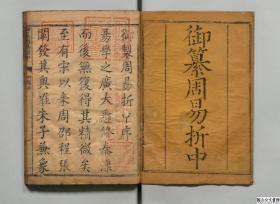 御纂周易折中
御製周易折中序
易學之廣大悉備秦漢
而後無復得其精微矣
至有宋以來周邵程張
闡發其奧惟朱子兼象